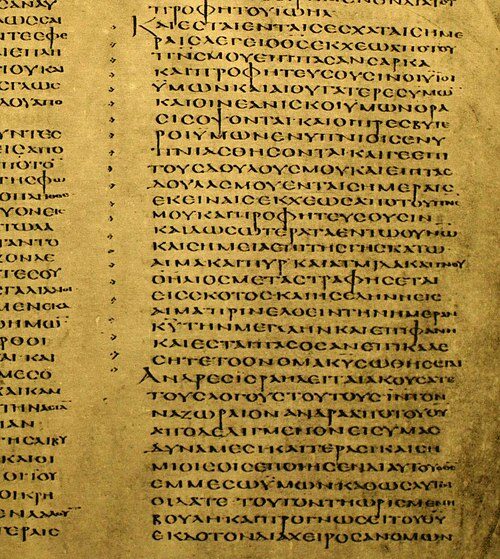 ΝΤΕϹ
ΕΙϹΑΠΟ
ΥΟΝΕΙϹ
ΓΑΝΤΟ
ΖΟΝΑΕ
ΤΕϹΟΥ
ΜΕΝΕΚΑ
ΟΗΜΩ
ΡΘΟΙ
ΑΙ ΚΑΙ
ΜΕϹΟ
ΧΑΙΚΑΝ
ΚΑΙΟΙ
ΤΕΡΑΙϹ
ΠΡΟΦΗΤΟΥΙΩΗΛ
ΚΑΙΕϹΤΑΙΕΝΤΑΙϹΕϹΧΑΤΑΙϹΗΜΕ
ΡΑΙϹΛΕΓΕΙΟΘϹΕΚΧΕΩΑΠΟΤΟΥ
ΠΝϹΜΟΥΕΠΙΠΑϹΑΝϹΑΡΚΑ
ΚΑΙΠΡΟΦΗΤΕΥϹΟΥϹΙΝΟΙΫΙΟΙ
ΫΜΩΝΚΑΙΑΙΘΥΓΑΤΕΡΕϹΥΜΩ
ΚΑΙΟΙΝΕΑΝΙϹΚΟΙΥΜΩΝΟΡΑ
ϹΙϹΟΨΟΝΤΑΙΚΑΙΟΙΠΡΕϹΒΥΤΕ
ΡΟΙΫΜΩΝΕΝΥΠΝΙΟΙϹΕΝΥ
ΠΝΙΑϹΘΗϹΟΝΤΑΙΚΑΙΓΕΕΠΙ
ΤΟΥϹΔΟΥΛΟΥϹΜΟΥΚΑΙΕΠΙΤΑϹ
ΔΟΥΛΑϹΜΟΥΕΝΤΑΙϹΗΜΕΡΑΙϹ
ΕΚΕΙΝΑΙϹΕΚΧΕΩΑΠΟΤΟΥΠΝϹ
ΜΟΥΚΑΙΠΡΟΦΗΤΕΥϹΟΥϹΙΝ
ΚΑΙΔΩϹΩΤΕΡΑΤΑΕΝΤΩΟΥΝΩ
ΚΑΙϹΗΜΕΙΑΕΠΙΤΗϹΓΗϹΚΑΤΩ
ΑΙΜΑΚΑΙΠΥΡΚΑΙΑΤΜΙΔΑΚΑΠΝΟΥ
ΟΗΛΙΟϹΜΕΤΑϹΤΡΑΦΗϹΕΤΑΙ
ΕΙϹϹΚΟΤΟϹΚΑΙΗϹΕΛΗΝΗΕΙϹ
ΑΙΜΑΠΡΙΝΕΛΘΕΙΝΤΗΝΗΜΕΡΑΝ
ΚΥΤΗΝΜΕΓΑΛΗΝΚΑΙΕΠΙΦΑΝΗ
ΚΑΙΕϹΤΑΙΠΑϹΟϹΑΝΕΠΙΚΑΛΕ
ϹΗΤΕΤΟΟΝΟΜΑΚΥϹΩΘΗϹΕΤΑΙ
ΑΝΔΡΕϹΙϹΡΑΗΛΕΙΤΑΙΑΚΟΥϹΑΤΕ
ΤΟΥϹΛΟΓΟΥϹΤΟΥΤΟΥϹΙΝΤΟΝ
ΝΑΖΩΡΑΙΟΝΑΝΔΡΑΑΠΟΤΟΥΘΥ
ΑΠΟΔΕΔΙΓΜΕΝΟΝΕΙϹΥΜΑϹ
ΔΥΝΑΜΕϹΙΚΑΙΤΕΡΑϹΙΚΑΙϹΗ
ΜΙΟΙϹΟΙϹΕΠΟΙΗϹΕΝΔΙΑΥΤΟΥΟΘϹ
ΕΜΜΕϹΩΫΜΩΝΚΑΘΩϹΑΥΤΟΙ
ΟΙΔΑΤΕΤΟΥΤΟΝΤΗΩΡΙϹΜΕΝΗ
ΒΟΥΛΗΚΑΙΠΡΟΓΝΩϹΕΙΤΟΥΘΥ
ΕΚΔΟΤΟΝΔΙΑΧΕΙΡΟϹΑΝΟΜΩΝ